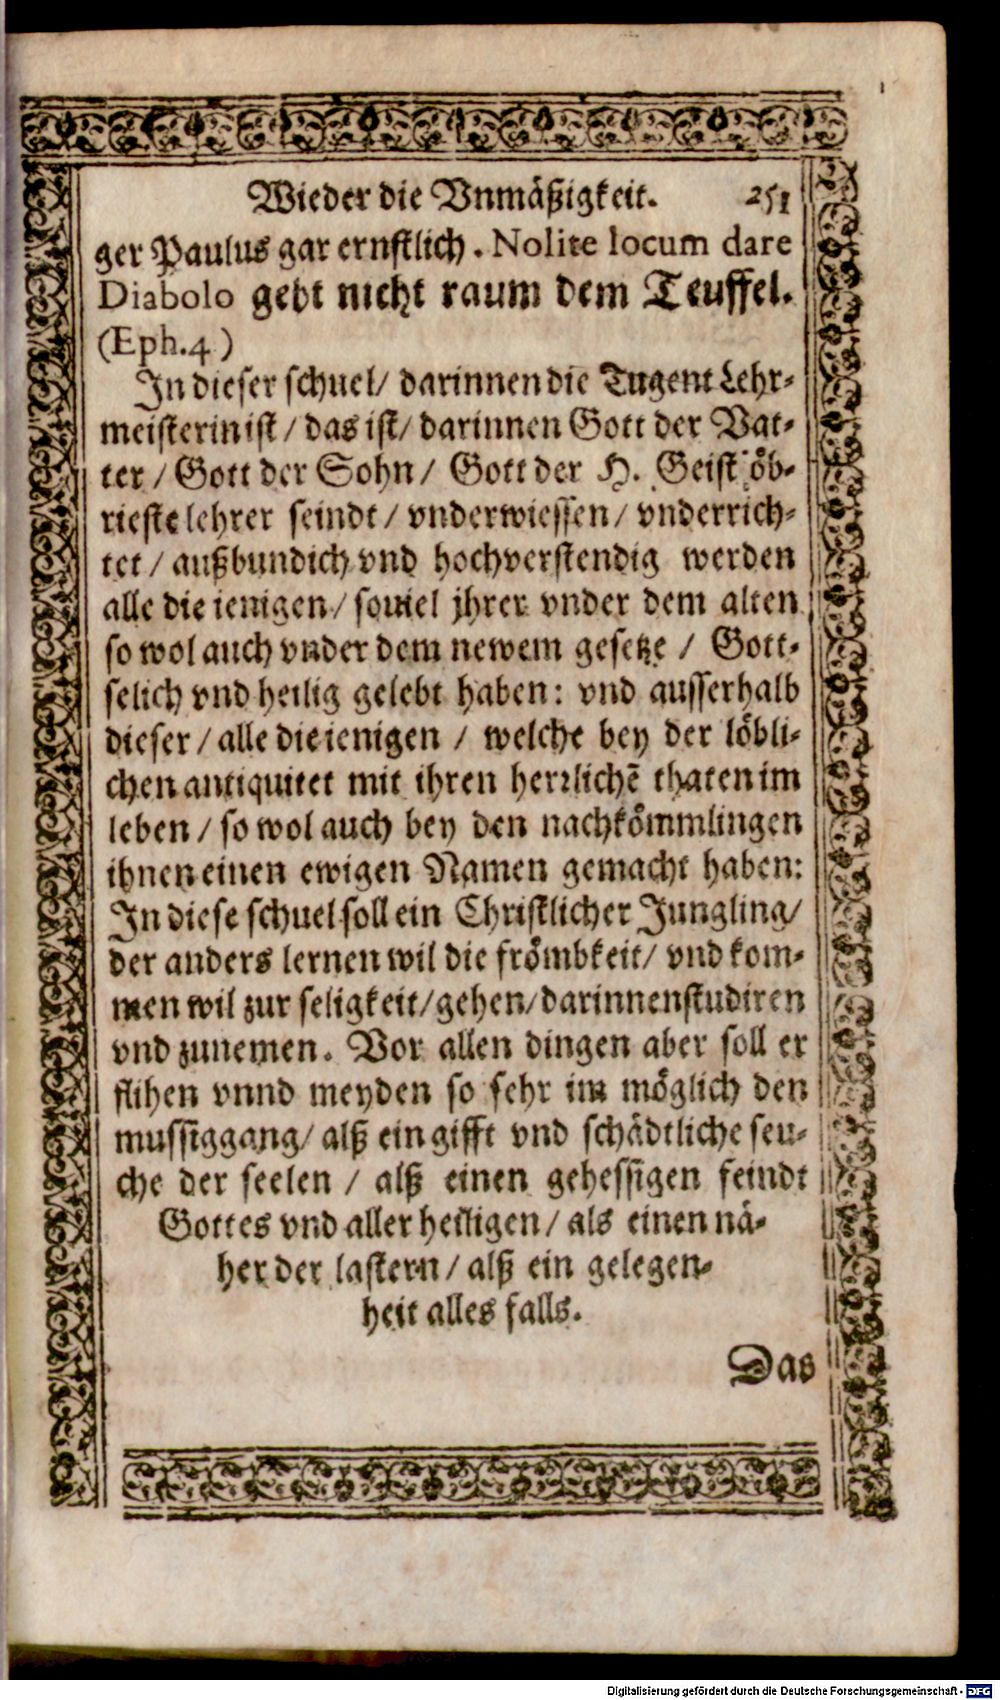 Wieder die Vnmäßigkeit. 251
ger Paulus gar ernstlich. Nolite locum dare
Diabolo gebt nicht raum dem Teuffel.
(Eph.4)
In dieser schuel/ darinnen die Tugent Lehr-
meisterin ist/ das ist/ darinnen Gott der Vat-
ter/ Gott der Sohn/ Gott der H. Geist öb-
rieste lehrer seindt/ vnderwiessen/ vnderrich-
tet/ außbundich vnd hochverstendig werden
alle die ienigen/ souiel jhrer vnder dem alten
so wol auch vnder dem newem gesetze/ Gott-
selich vnd heilig gelebt haben: vnd ausserhalb
dieser/ alle die ienigen/ welche bey der löbli-
chen antiquitet mit ihren herrlichē thaten im
leben/ so wol auch bey den nachkömmlingen
ihnen einen ewigen Namen gemacht haben:
In diese schuel soll ein Christlicher Jungling/
der anders lernen wil die frömbkeit/ vnd kom-
men wil zur seligkeit/ gehen/ darinnen studiren
vnd zunemen. Vor allen dingen aber soll er
flihen vnnd meyden so sehr im möglich den
mussiggang/ alß ein gifft vnd schädtliche seu-
che der seelen/ alß einen gehessigen feindt
Gottes vnd aller heiligen/ als einen nä-
her der lastern/ alß ein gelegen-
heit alles falls.
Das
Digitalisierung gefördert durch die Deutsche Forschungsgemeinschaft - DFG